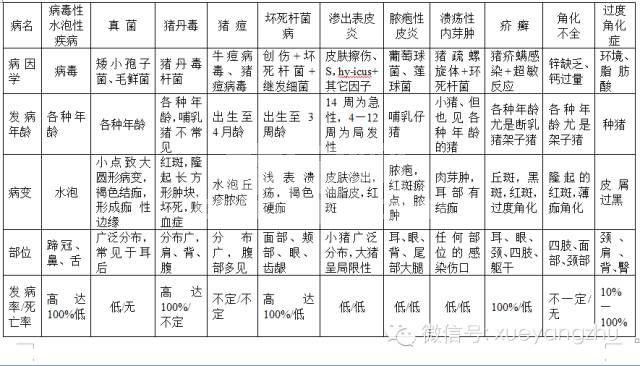 病名
病毒性
水泡性
疾病
真 菌
猪丹毒
猪 痘
坏死杆菌
病
渗出表皮
炎
脓疱性皮
炎
溃疡性
内芽肿
疥 癣
角化
不全
过度
角化
症
病 因
学
病毒
矮小孢子
菌、毛鲜菌
猪丹毒
杆菌
牛痘病
毒、猪
痘病毒
创伤+坏
死杆菌+
继发细菌
皮肤擦伤、
S,hy-icus+
其它因子
葡萄球
菌、莲
球菌
猪疏螺
旋体+环
死杆菌
猪疥螨感
染+超敏
反应
锌缺乏、
钙过量
环境、
脂 肪
酸
发 病
年龄
各种年龄
各种年龄
各 种 年
龄,哺乳
猪 不 常
见
出生至
4月龄
出生至 3
周龄
14 周为急
性, 4—12
周为局发
性
哺乳仔
猪
小猪、但
也 见 各
种 年 龄
的猪
各种年龄
尤是断乳
猪架子猪
各 种 年
龄 尤 是
架子猪
种猪
病变
水泡
小点致大
圆形病变,
褐色结痂,
形成痂 性
边缘
红斑,隆
起 长 方
形肿块,
坏死,败
血症
水 泡 丘
疹脓疱
浅 表 溃
疡, 褐色
硬痂
皮肤渗出,
油脂皮,红
斑
脓疱,
红斑瘀
点, 脓
肿
肉芽肿,
耳 部 有
结痂
丘斑,黑
斑,红斑,
过度角化
隆起的
红斑,薄
痂角化
皮 屑
过黑
部位
蹄冠、
鼻、舌
广泛分布,
常见于耳
后
分布广,
肩、背、
腹
分 布
广,腹
部多见
面部、颊
部、眼、
齿龈
小猪广泛
分布,大猪
呈局限性
耳、眼、
背、尾部
大腿
任 何 部
位 的 感
染伤口
耳、眼、
颈、四肢、
躯干
四肢、面
部、颈部
颈 、
肩 、
背、臀
发 病
率/死
亡率
高 达
100%/低
低/无
高 达
100%/
不定
不定/不
定
高 达
100%/低
低/低
低/低
低/低
100%/低
不一定/
无
10%
—
100%
微信号: xueyangzhu